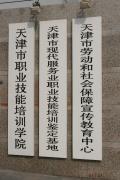 天津市职业技能培训学院
天津市现代服务业职业技能培训鉴定基地
天津市劳动和社会保障宣传教育中心